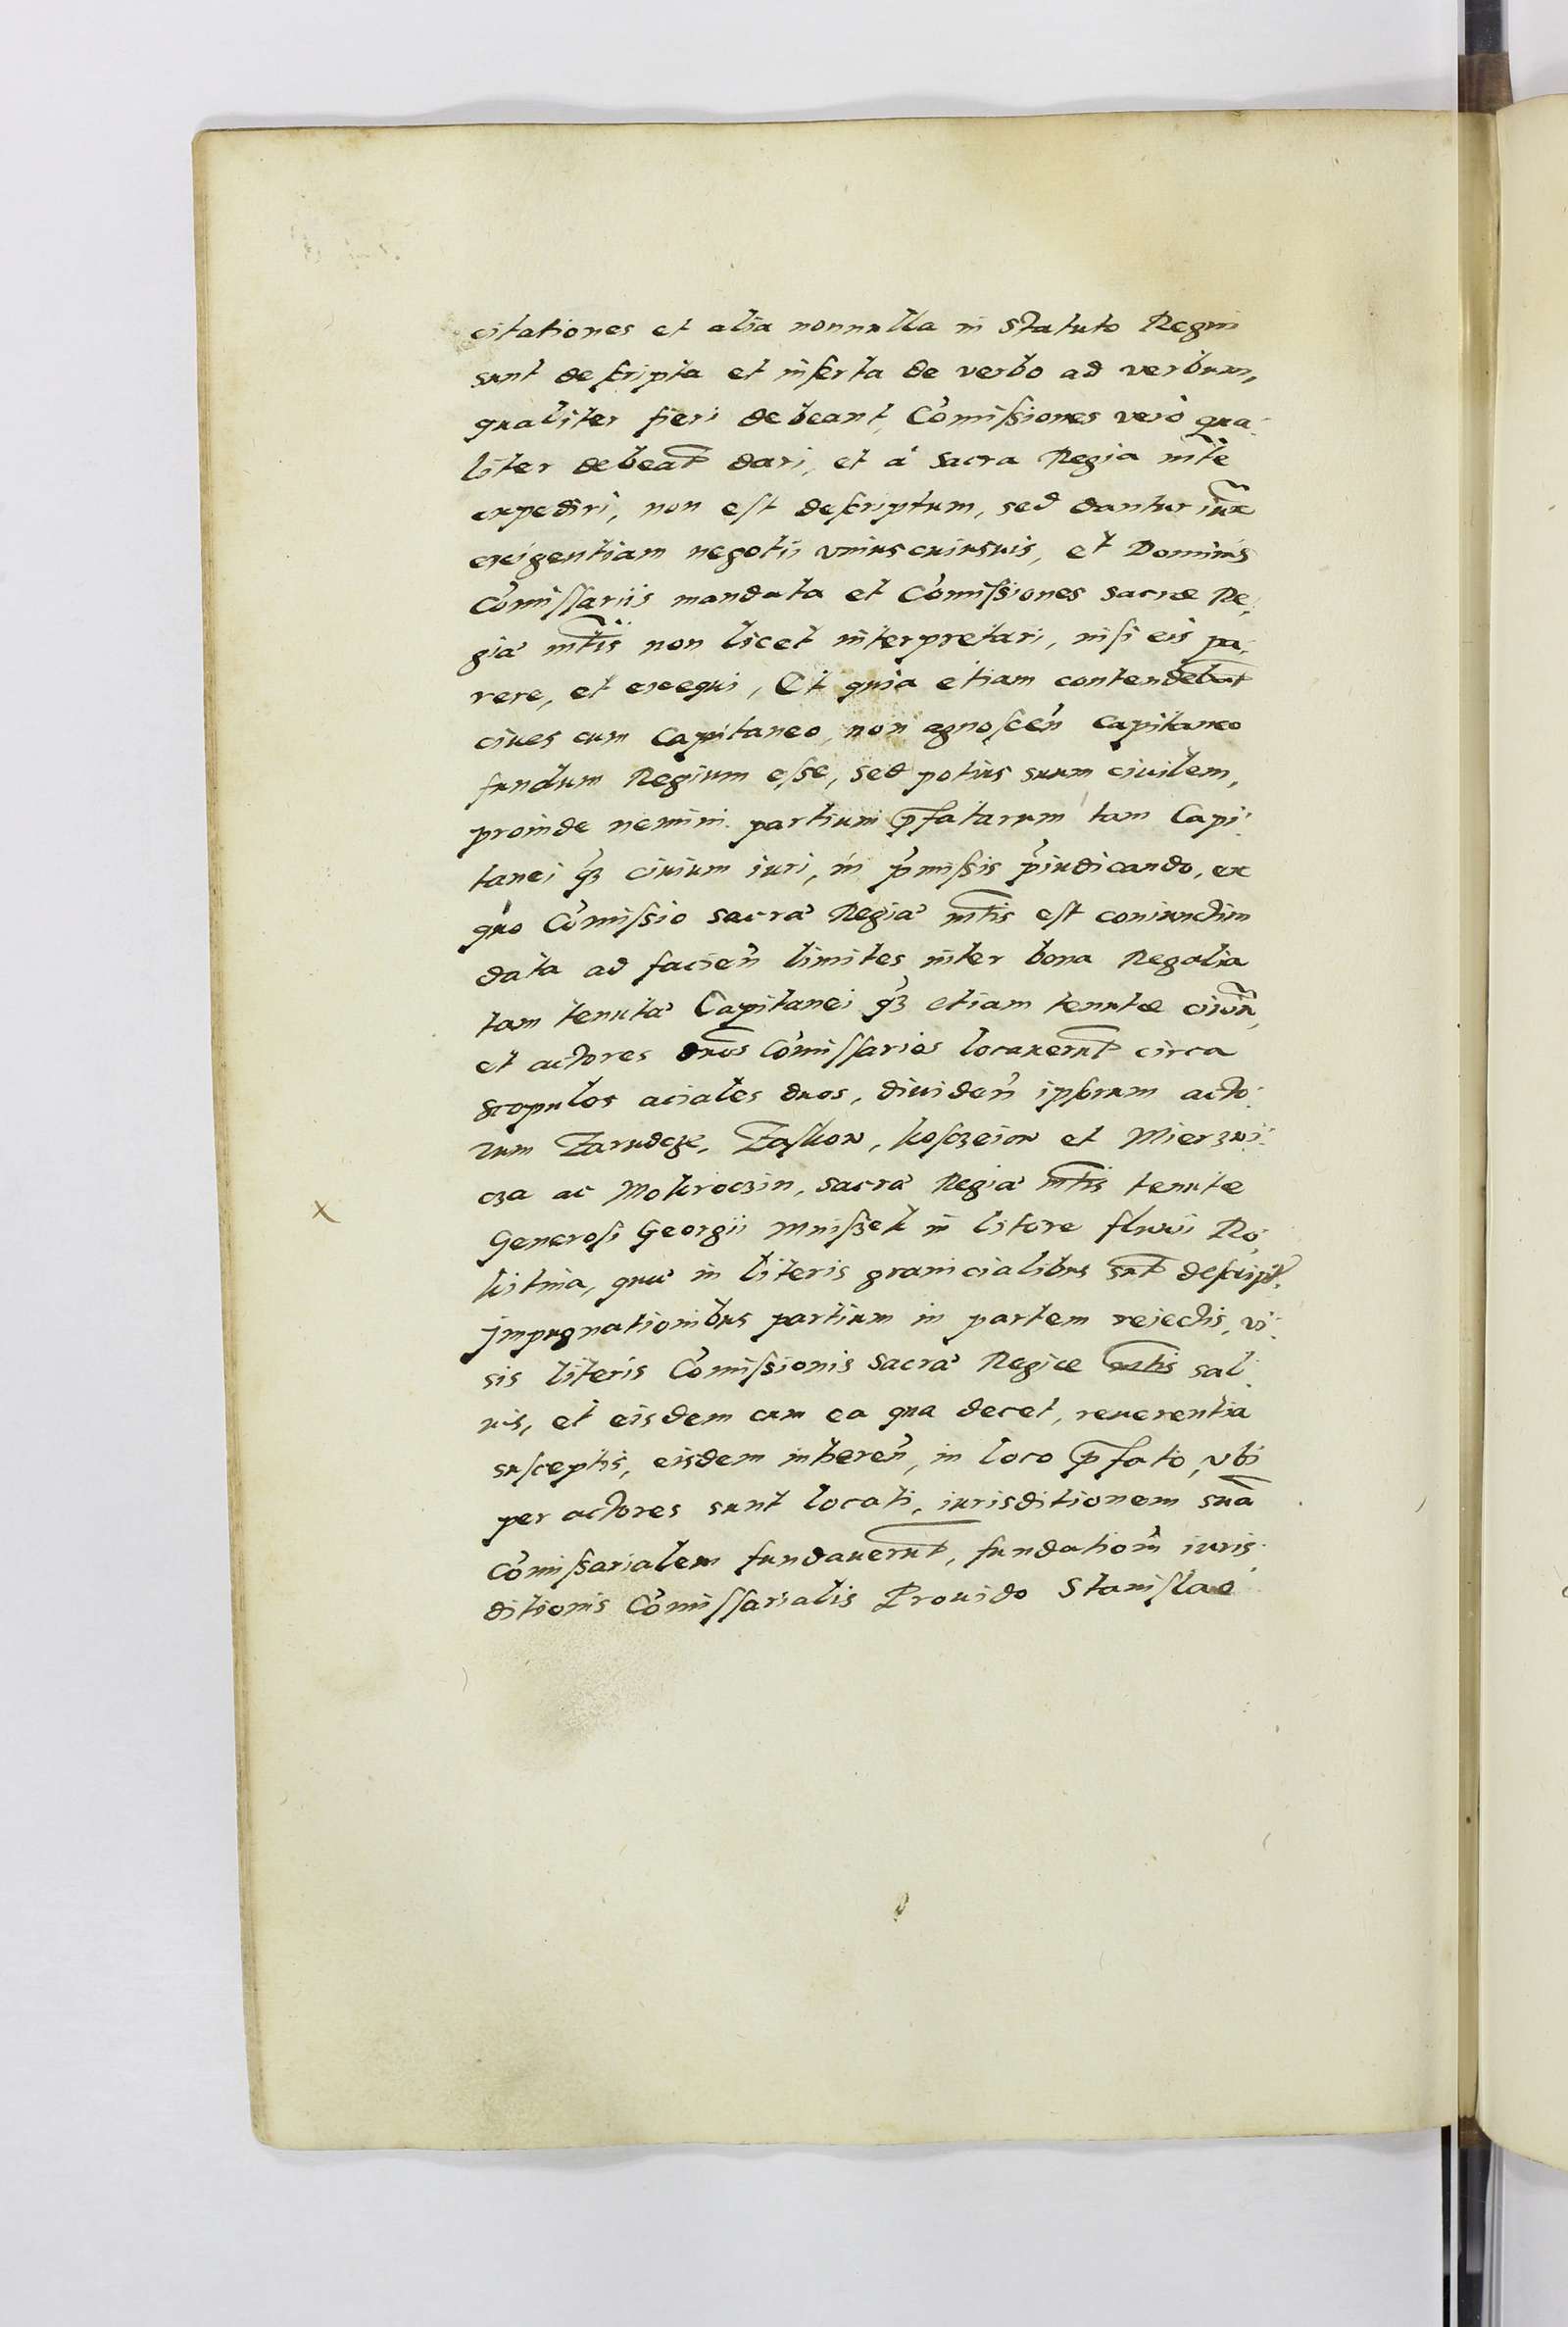 citationes et alia nonnulla in Statuto Regni
sunt descripta et inserta de verbo ad verbum,
qualiter fieri debeant, Com̃issiones verò qua-
liter debeañt dari, et à sacra Regia mt̃e
expediri, non est descriptum, sed dantur iux̃
exigentiam negotii vniuscuiusuis, et Dominis
Com̃issariis mandata et Com̃issiones sacræ Re-
giæ mt̃is non licet interpretari, nisi eis pa-
rere, et exequi, Et quia etiam contendebañt
ciues cum Capitaneo, non agnoscen̄ Capitaneo
fundum Regium esse, sed potius suum ciuilem,
proinde nemini partium p̄fatarum tam Capi-
tanei q̃з ciuium iuri, in p̄missis p̄iudicando, ex
quo Com̃issio sacræ Regiæ mt̃is est coniunctim
data ad facien̄ limites inter bona Regalia
tam tenutæ Capitanei q̃з etiam tenutæ ciuiũ,
et actores dños Com̃issarios locauerũt circa
scopulos aciales duos, diuiden̄ ipsorum acto-
rum Zarudcze, Zaskow, kosczeiow et Mierzwi-
cza ac Mokroczin, sacræ Regiæ mt̃is tenutæ
Generosi Georgii Mniszek in litore fluuii Ro-
kitnia, quæ in literis granicialibus sũt descript.
Impugnationibus partium in partem reiectis, vi-
sis literis Com̃issionis sacræ Regiæ mt̃is sal-
uis, et eisdem cum ea qua decet, reuerentia
susceptis, eisdem inheren̄, in loco p̄fato, vbi
per actores sunt locati, iurisditionem suã
Com̃issarialem fundauerũt, fundatiom̃ iuris-
ditionis Com̃issarialis Prouido Stanislao